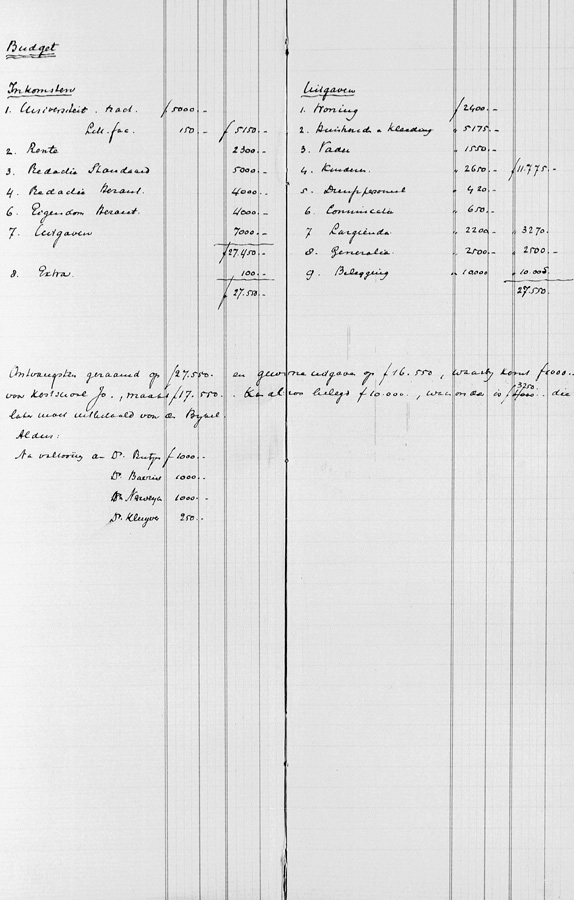 Budget
Inkomsten
1. Universiteit. tract. f 5000.-
Litt. fac. 150.- f 5150.-
2. Rente 2300.-
3. Redactie Standaard 5000.-
4. Redactie Heraut. 4000.-
6. Eigendom Heraut. 4000.-
7. Uitgaven 7000.-
f 27.450.-
8. Extra 100.-
f 27.550.-
Uitgaven
1. Woning f 2400.-
2. Huishoud. & Kleeding " 5175.-
3. Vader " 1550.-
4. Kinderen. " 2650.- f 11.775.-
5. " 420.-
6. " 650.-
7. Largienda " 2200.- " 3270.
8. Generalia. " 2500.- " 2500.-
9. Belegging " 10000 " 10.005.
27.550.
Ontvangsten geraamd op f 27.550.- en gewone uitgaven op f 16.550, waarbij komt f 1000.-
voor Jo., maakt f 17.550. Kan alzoo belegd f 10.000., waaronder is f 3250 die
later moet uitbetaald van de Bijbel.
Aldus:
Na voltooiing aan Dr. f 1000.-
Dr. Bavinck 1000.-
Dr. 1000.-
Dr. Kluyver 250.-